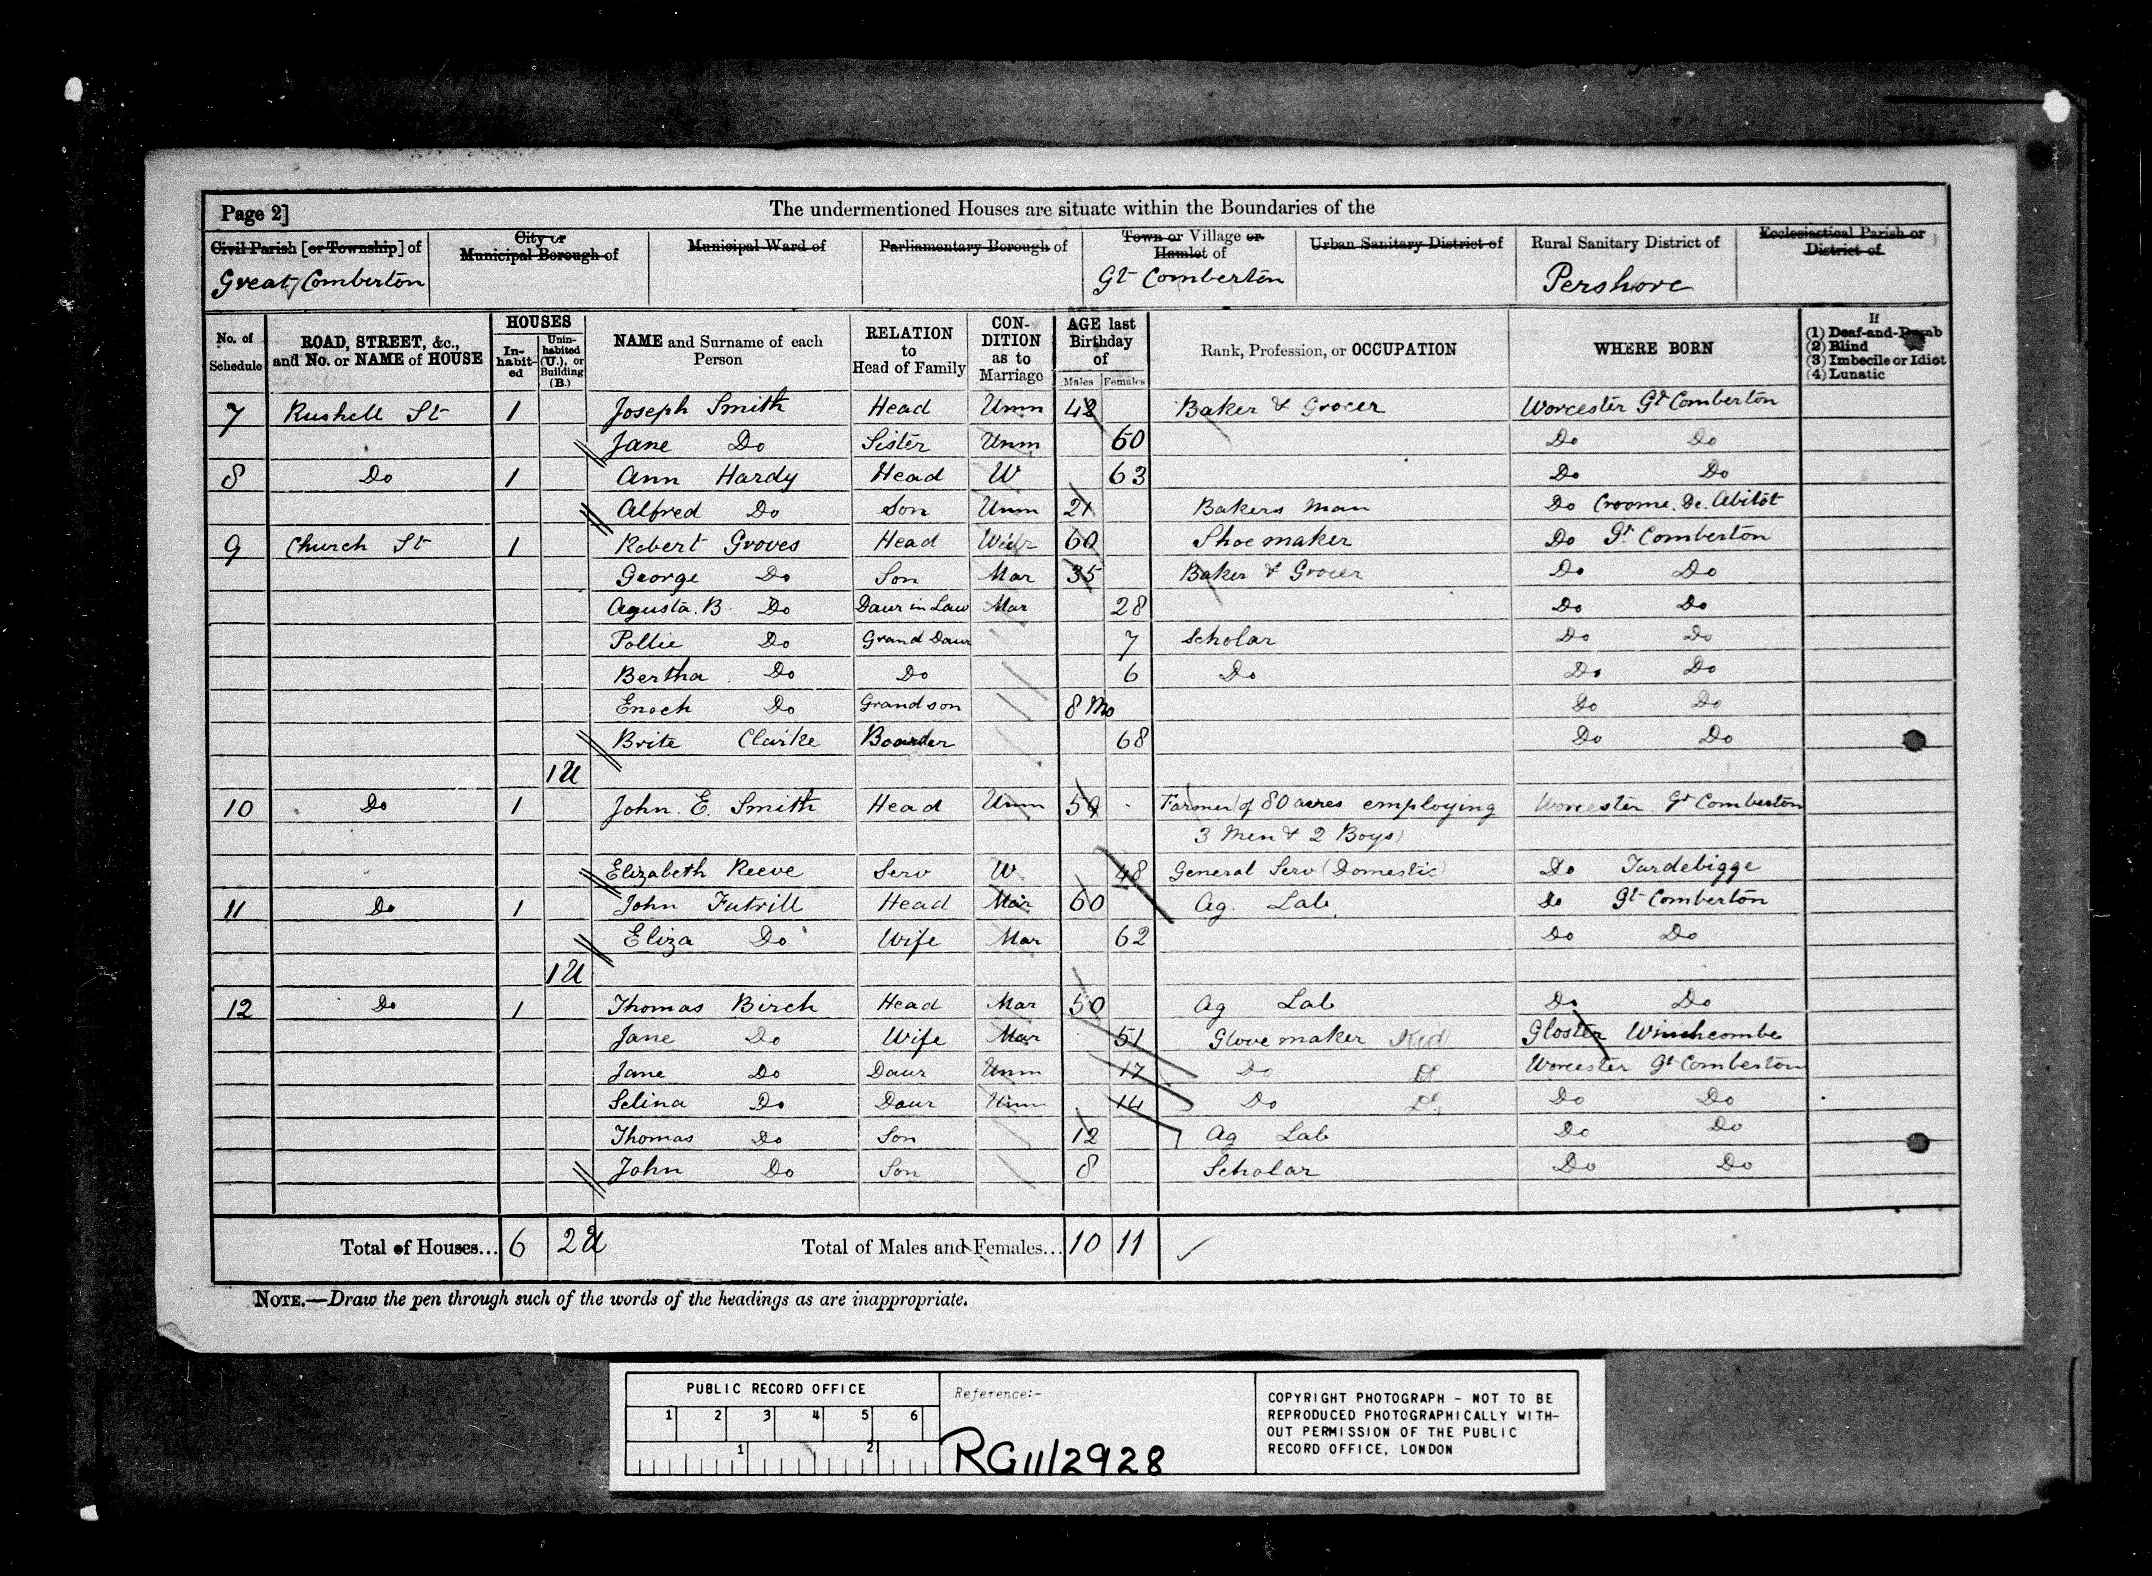 Page 2]
The undermentioned Houses are situate within the Boundaries of the
Civil Parish [or Township] of
City or Municipal Borough of
Municipal Ward of
Parliamentary Borough of
Town or Village or Hamlet of
Urban Sanitary District of
Rural Sanitary District of
Ecclesiastical Parish or District of
Great Comberton
Gt Comberton
Pershore
No. of Schedule
ROAD, STREET, &c., and No. or NAME of HOUSE
HOUSES
In-habit-ed
Unin-habited (U.), or Building (B.)
NAME and Surname of each Person
RELATION to Head of Family
CON-DITION as to Marriage
AGE last Birthday of
Males Females
Rank, Profession, or OCCUPATION
WHERE BORN
If
(1) Deaf-and-Dumb
(2) Blind
(3) Imbecile or Idiot
(4) Lunatic
7 Rushell St 1 Joseph Smith Head Unm 42 Baker & Grocer Worcester Gt Comberton
Jane Do Sister Unm 50 Do Do
8 Do 1 Ann Hardy Head W 63 Do Do
Alfred Do Son Unm 21 Bakers Man Do Croome. De. Abitot
9 Church St 1 Robert Groves Head Widr 60 Shoe maker Do Gt Comberton
George Do Son Mar 35 Baker & Grocer Do Do
Agusta. B. Do Daur in Law Mar 28 Do Do
Pollie Do Grand Daur 7 Scholar Do Do
Bertha Do Do 6 Do Do Do
Enoch Do Grandson 8 Mo Do Do
Brite Clarke Boarder 68 Do Do
1 U
10 Do 1 John. E. Smith Head Unm 50 Farmer of 80 acres employing Worcester Gt Comberton
3 Men & 2 Boys
Elizabeth Reeve Serv W 48 General Serv (Domestic) Do Tardebigge
11 Do 1 John Futrill Head Mar 60 Ag. Lab Do Gt Comberton
Eliza Do Wife Mar 62 Do Do
1 U
12 Do 1 Thomas Birch Head Mar 50 Ag Lab Do Do
Jane Do Wife Mar 51 Glove maker Kid Gloster Winchcombe
Jane Do Daur Unm 17 Do Do Worcester Gt Comberton
Selina Do Daur Unm 14 Do Do Do Do
Thomas Do Son 12 Ag Lab Do Do
John Do Son 8 Scholar Do Do
Total of Houses... 6 2 U Total of Males and Females... 10 11
NOTE.—Draw the pen through such of the words of the headings as are inappropriate.
PUBLIC RECORD OFFICE
1 2 3 4 5 6
1 2
Reference:-
RG11/2928
COPYRIGHT PHOTOGRAPH - NOT TO BE
REPRODUCED PHOTOGRAPHICALLY WITH-
OUT PERMISSION OF THE PUBLIC
RECORD OFFICE, LONDON